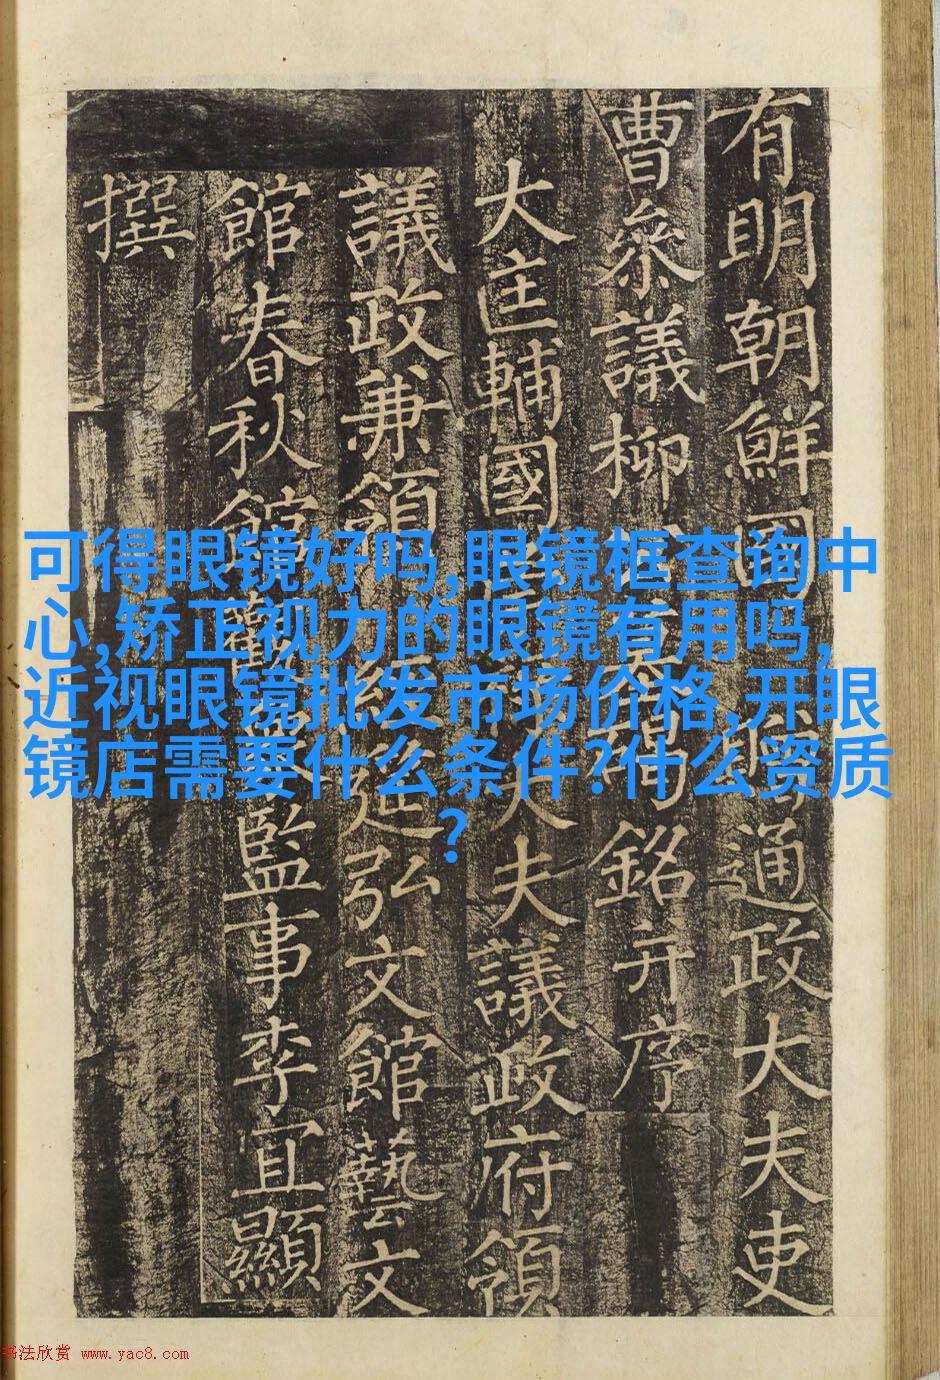 有明朝鮮國通政大夫吏
曹參議柳碣銘并序
大匡輔國大夫議政府領
議政兼領經筵弘文館藝文
館春秋館觀象監事李宜顯
撰
可得眼镜好吗,眼镜框查询中
心,矫正视力的眼镜有用吗,
近视眼镜批发市场价格,开眼
镜店需要什么条件?什么资质
?
书法欣赏 www.yac8.com